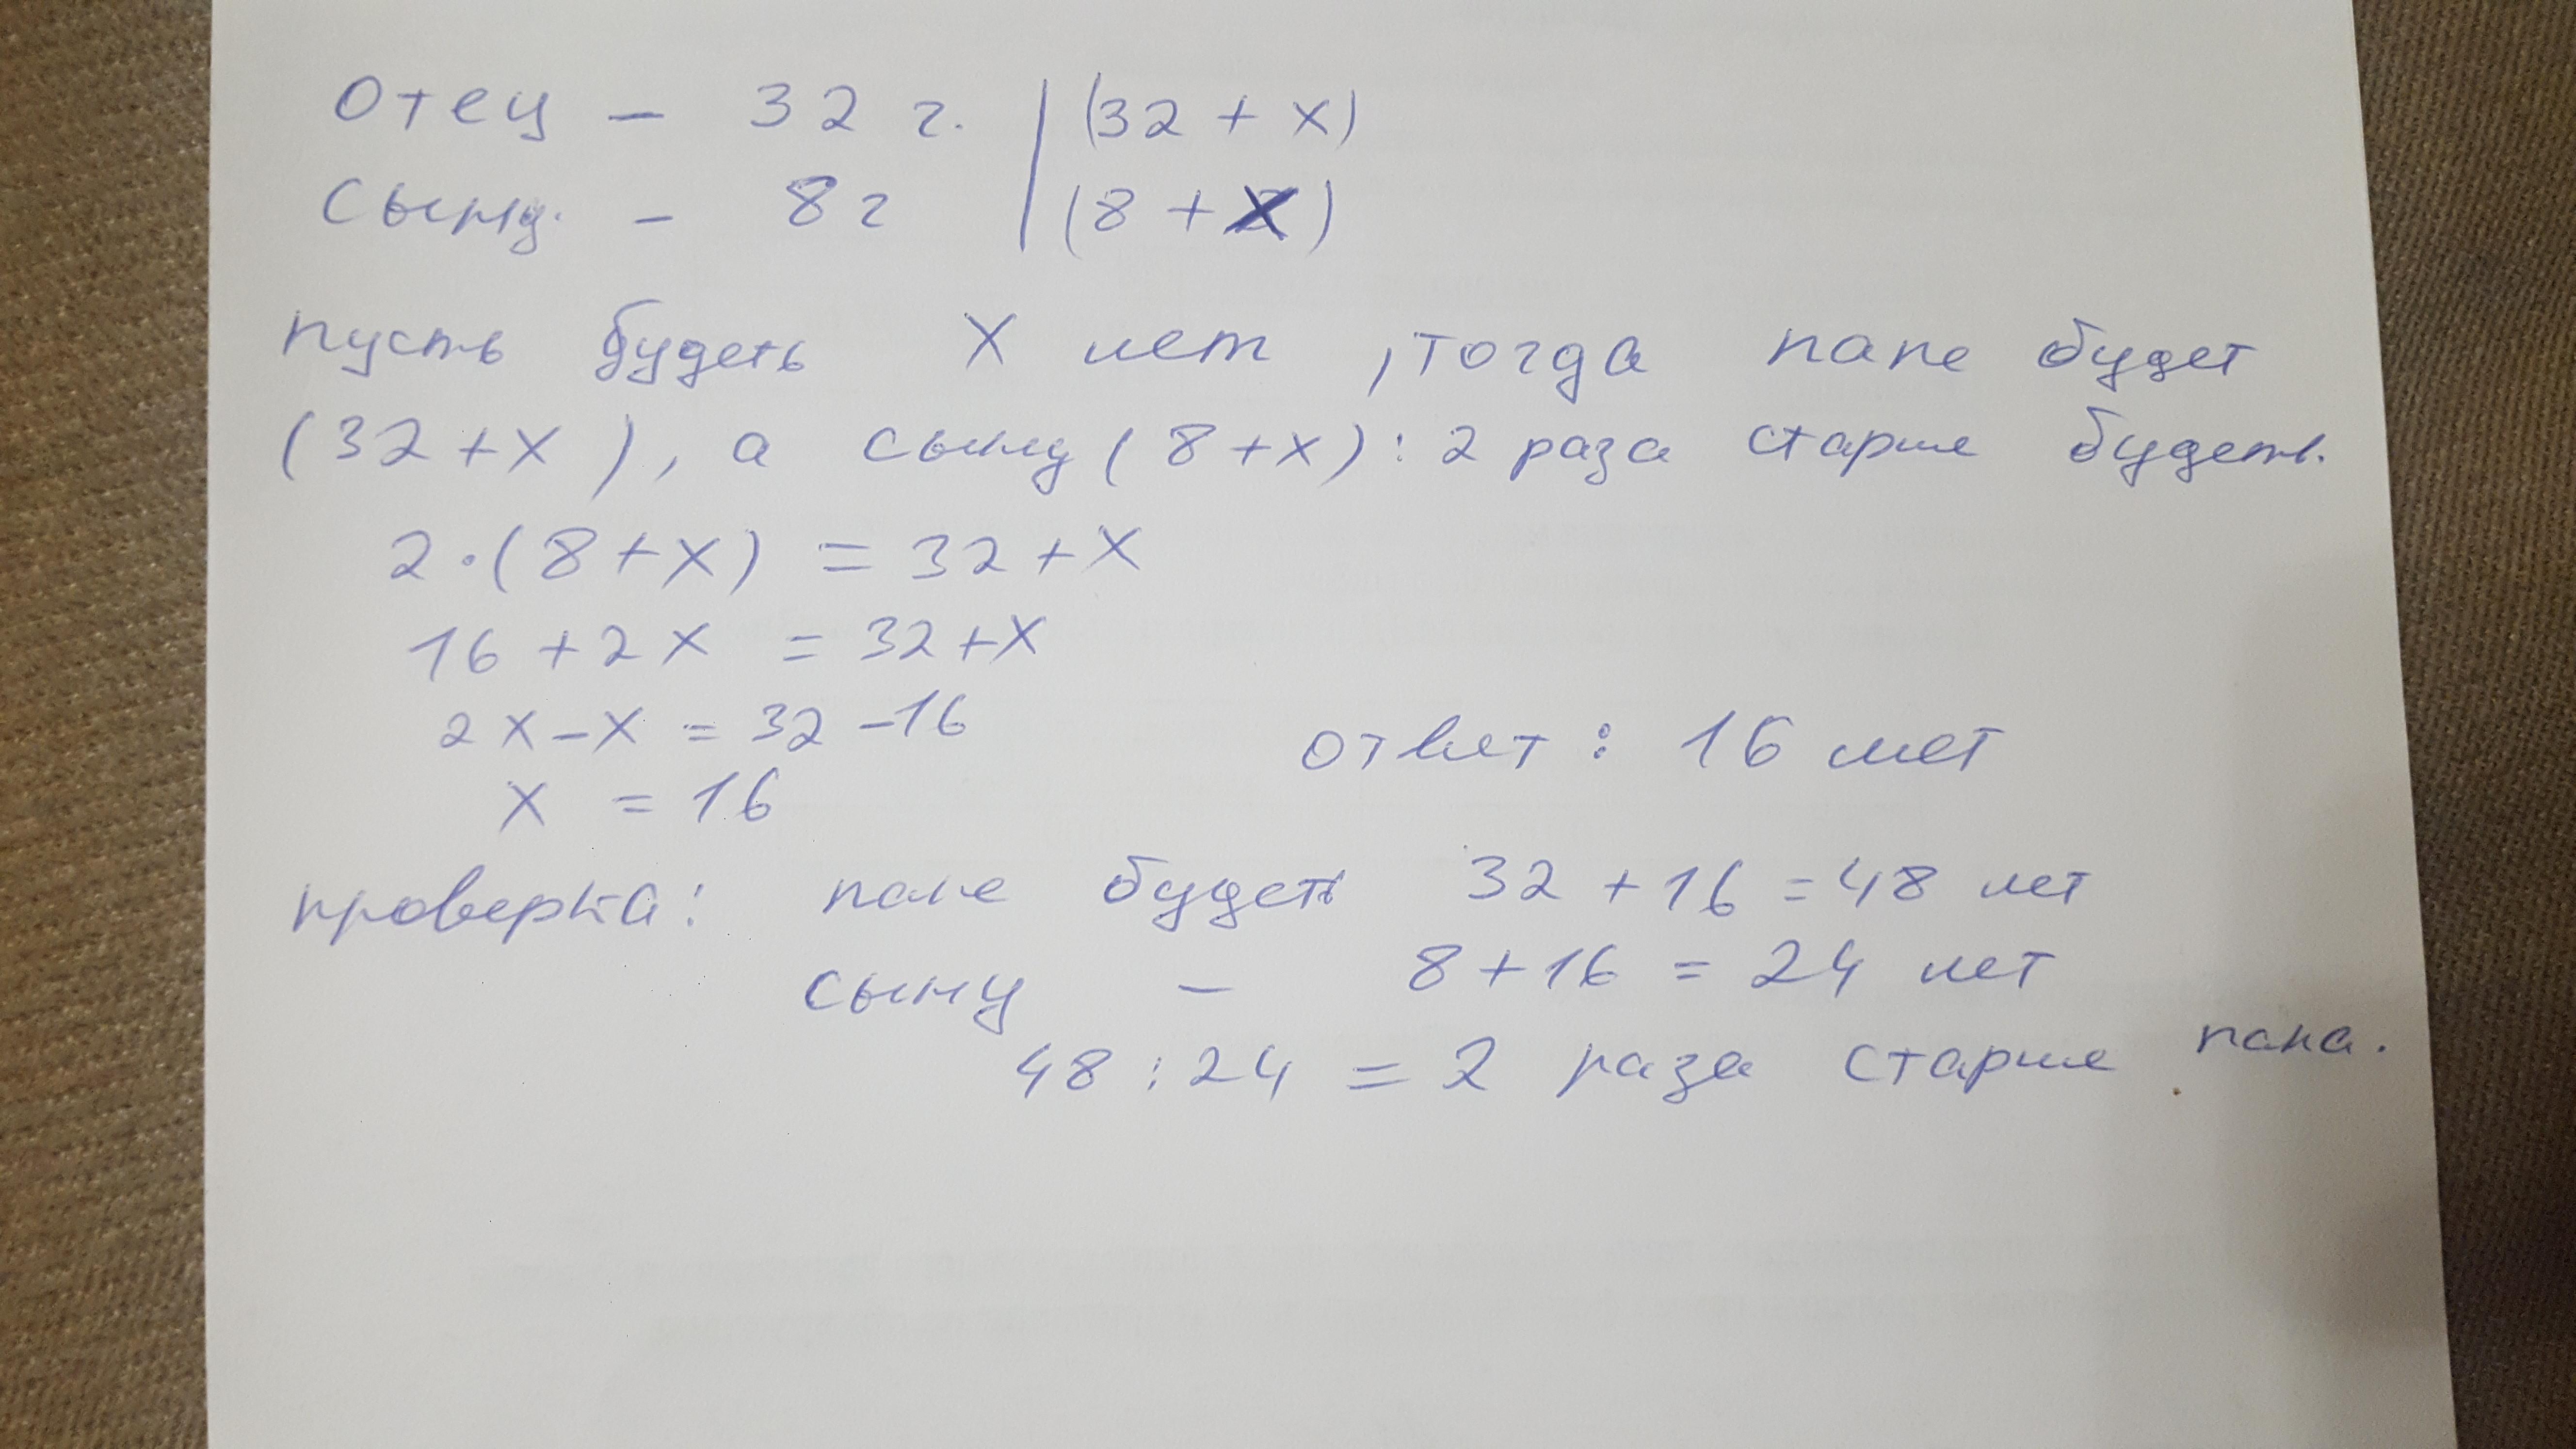 Отец - 32 г. | (32 + х)
Сыну. - 8 г | (8 + х)
пусть будеть х лет , тогда папе будет
(32 + х ), а сыну ( 8 + х) : 2 раза старше будеть.
2 · ( 8 + х ) = 32 + х
16 + 2 х = 32 + х
2 х - х = 32 - 16
х = 16
ответ : 16 лет
проверка : папе будеть 32 + 16 = 48 лет
сыну - 8 + 16 = 24 лет
48 : 24 = 2 раза старше папа.